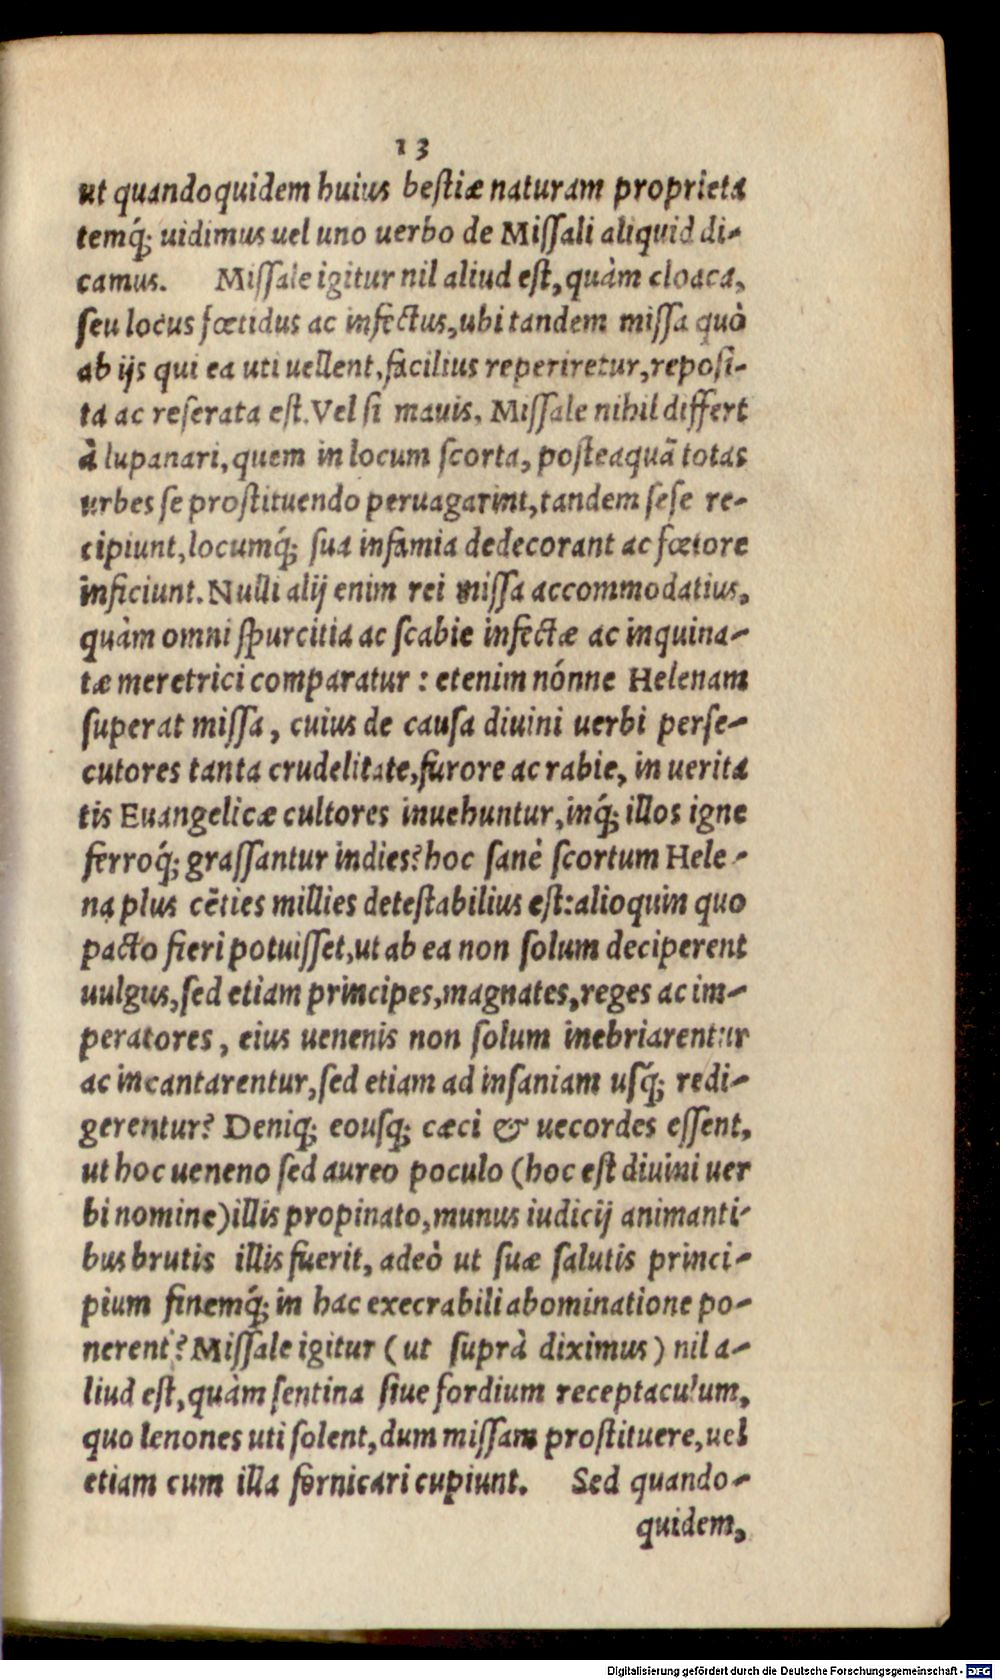 13
ut quandoquidem huius bestiæ naturam proprieta
temq́; uidimus uel uno uerbo de Missali aliquid di-
camus. Missale igitur nil aliud est, quàm cloaca,
seu locus fœtidus ac infectus, ubi tandem missa quò
ab ijs qui ea uti uellent, facilius reperiretur, reposi-
ta ac reserata est. Vel si mauis, Missale nihil differt
à lupanari, quem in locum scorta, posteaquā totas
urbes se prostituendo peruagarint, tandem sese re-
cipiunt, locumq́; sua infamia dedecorant ac fœtore
inficiunt. Nulli alij enim rei missa accommodatius,
quàm omni spurcitia ac scabie infectæ ac inquina-
tæ meretrici comparatur : etenim nónne Helenam
superat missa, cuius de causa diuini uerbi perse-
cutores tanta crudelitate, furore ac rabie, in uerita
tis Euangelicæ cultores inuehuntur, inq́; illos igne
ferroq́; grassantur indies? hoc sanè scortum Hele-
na plus cēties millies detestabilius est: alioquin quo
pacto fieri potuisset, ut ab ea non solum deciperent
uulgus, sed etiam principes, magnates, reges ac im-
peratores, eius uenenis non solum inebriarentur
ac incantarentur, sed etiam ad insaniam usq́; redi-
gerentur? Deniq; eousq; cæci & uecordes essent,
ut hoc ueneno sed aureo poculo (hoc est diuini uer
bi nomine) illis propinato, munus iudicij animanti-
bus brutis illis fuerit, adeò ut suæ salutis princi-
pium finemq́; in hac execrabili abominatione po-
nerent? Missale igitur (ut suprà diximus) nil a-
liud est, quàm sentina siue sordium receptaculum,
quo lenones uti solent, dum missam prostituere, uel
etiam cum illa fornicari cupiunt. Sed quando-
quidem,
Digitalisierung gefördert durch die Deutsche Forschungsgemeinschaft - DFG